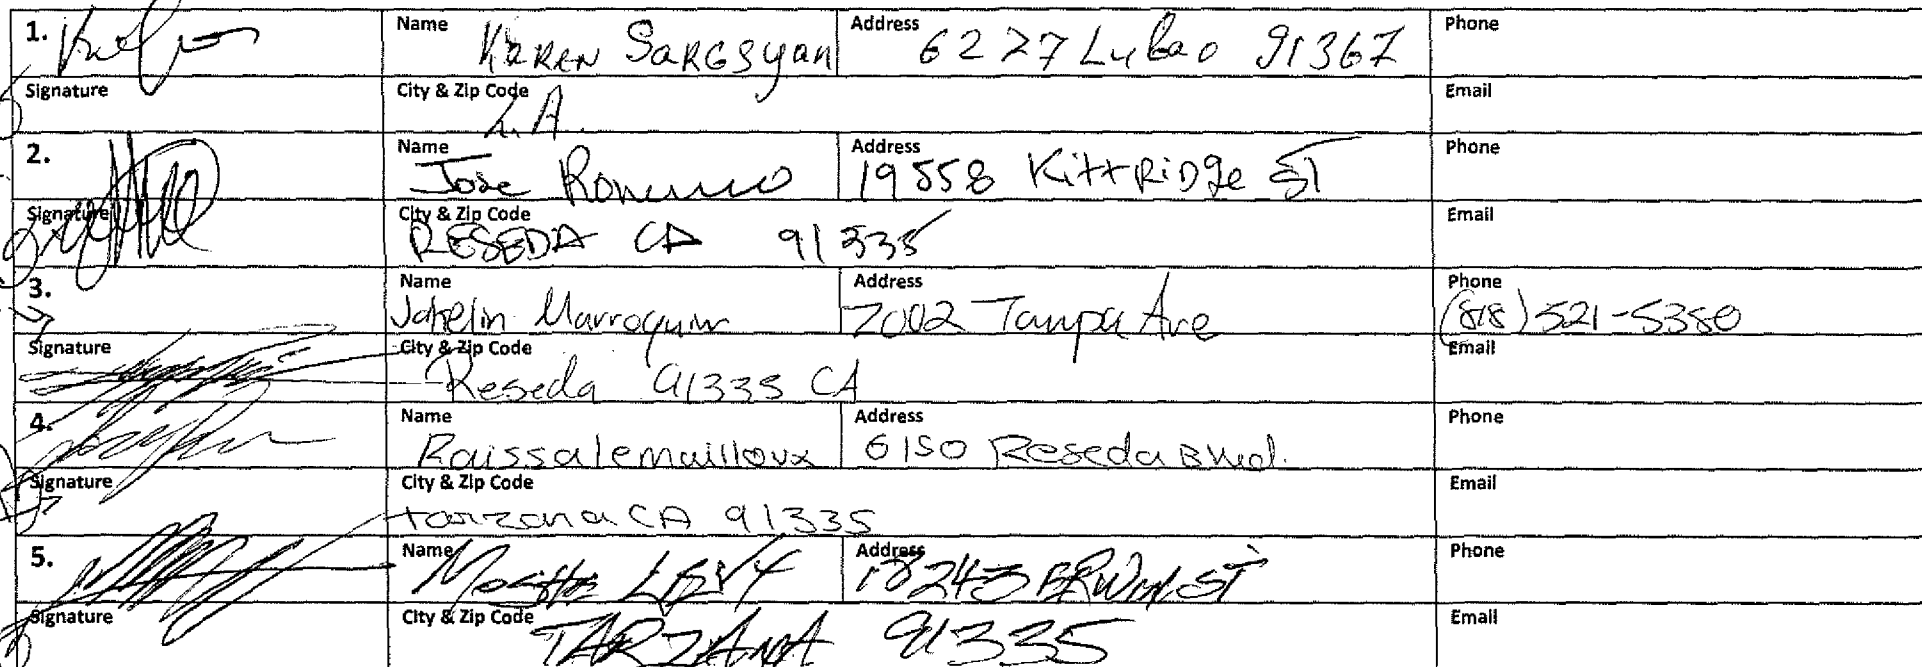 1. Name Karen Sargsyan Address 6227 Lubao 91367 Phone
Signature City & Zip Code L.A. Email
2. Name Jose Romero Address 19558 Kittridge ST Phone
Signature City & Zip Code RESEDA CA 91335 Email
3. Name Marroquin Address 7002 Tampa Ave Phone (818) 521-5350
Signature City & Zip Code Reseda 91335 CA Email
4. Name Raissa lemailloux Address 6150 Reseda Blvd. Phone
Signature City & Zip Code tarzana CA 91335 Email
5. Name Moshe LEVY Address ERWIN ST Phone
Signature City & Zip Code TARZANA 91335 Email